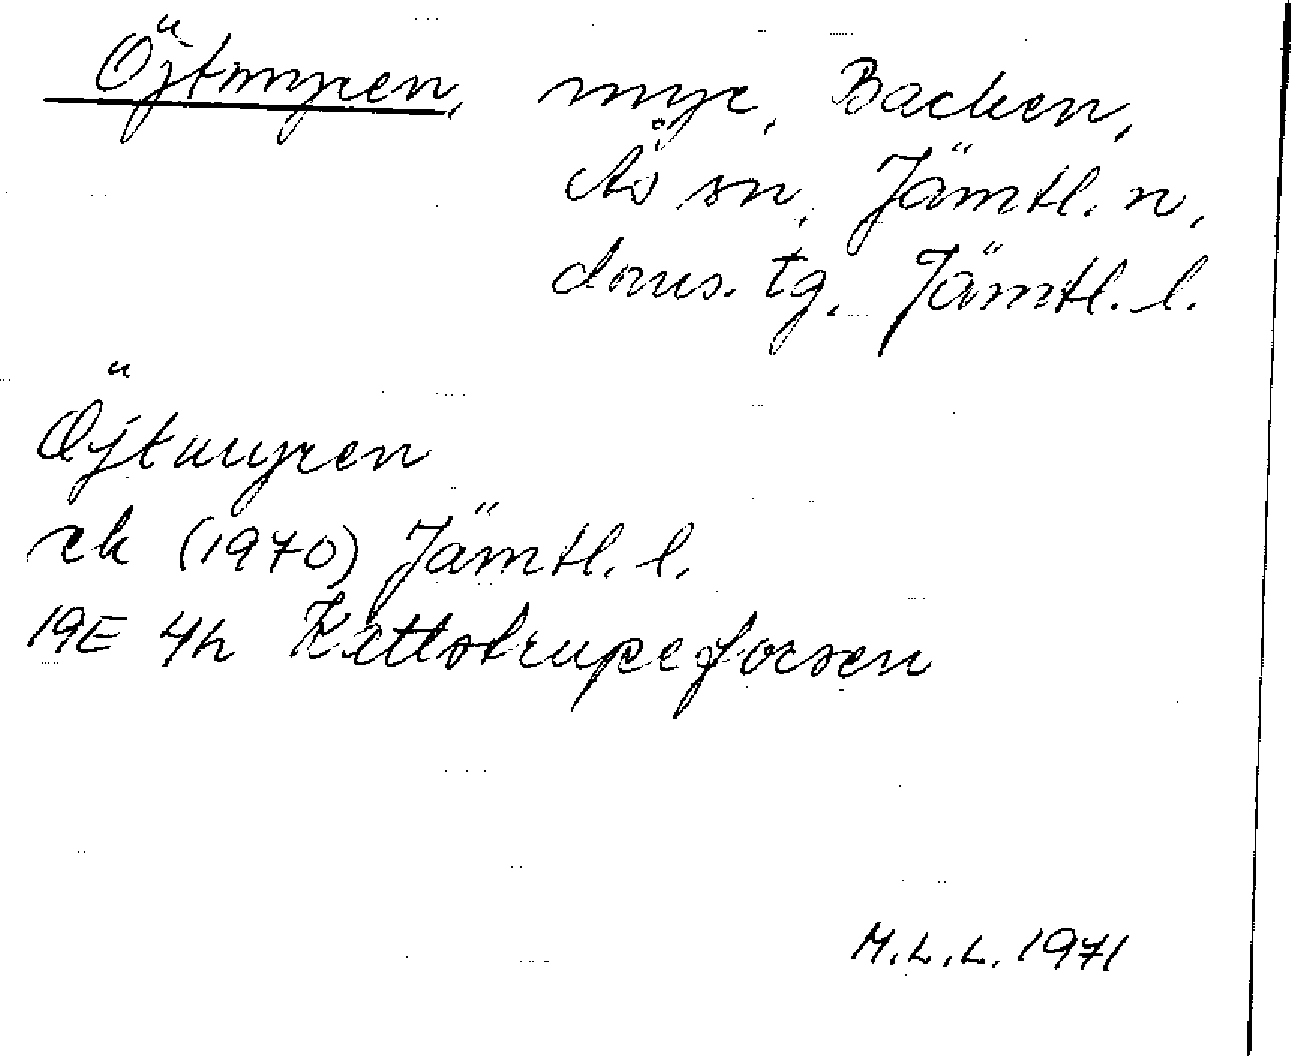 Öjtmyren, myr, Backen,
Ås sn, Jämtl. n.
doms. tg, Jämtl. l.
Öjtmyren
rek (1970) Jämtl. l.
19E 4h Kattstrupeforsen
M.L.L. 1971